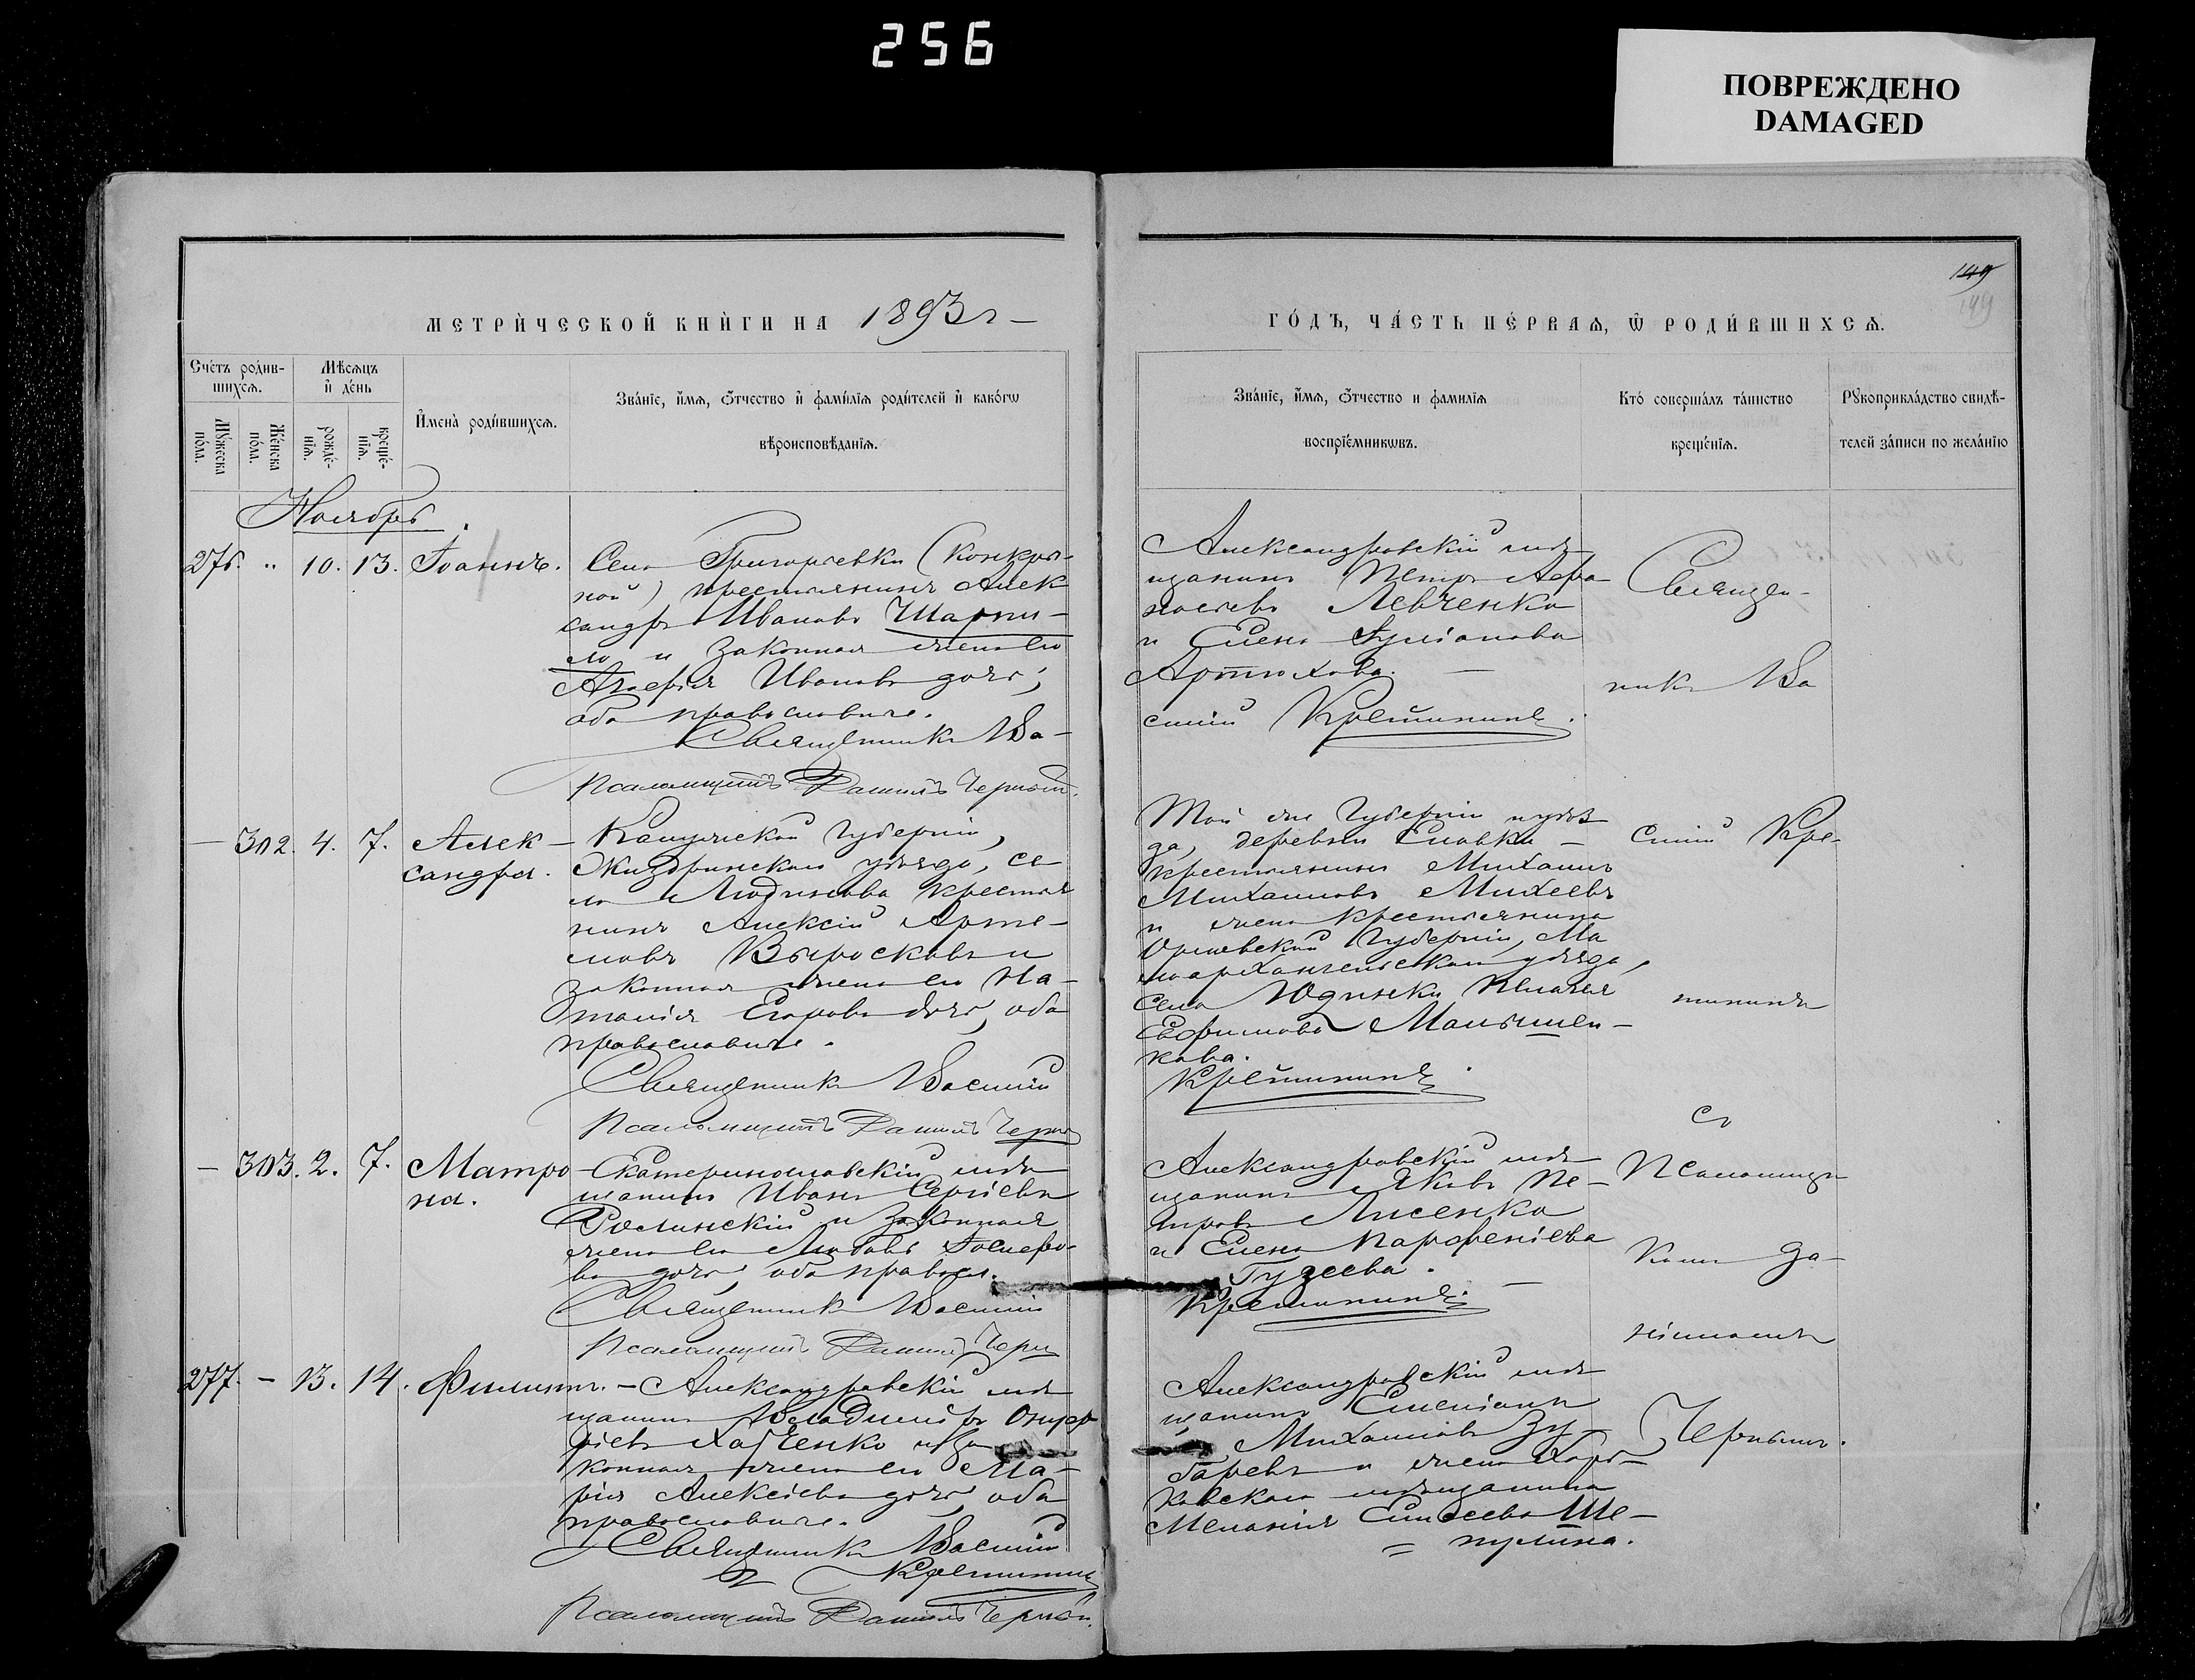 256
ПОВРЕЖДЕНО
DAMAGED
149
149
МЕТРИ́ЧЕСКОЙ КНИ́ГИ НА 1893 г
ГО́ДЪ, ЧА́СТЬ ПЕ́РВАѦ, Ѽ РОДИ́ВШИХСѦ.
Сче́тъ роди́в-
шихсѧ.
Мѣ́сѧцъ
и҆ де́нь
Мꙋ́жеска
по́ла.
Же́нска
по́ла.
рожде́-
нїѧ.
креще́-
нїѧ.
И҆мена̀ роди́вшихсѧ.
Зва́нїе, и҆́мѧ, ѻ҆́тчество и҆ фами́лїѧ роди́телей и҆ како́гѡ
вѣроисповѣ́данїѧ.
Зва́нїе, и҆́мѧ, ѻ҆́тчество и фами́лїѧ
воспрїе́мникѡвъ.
Кто̀ соверша́лъ та́инство
креще́нїѧ.
Рꙋкоприкла́дство свидѣ́-
телей за́писи по жела́нїю
Ноябрь
276. " 10. 13. Іоаннъ.
Села Григорьевки (Конкры-
ной) крестьянинъ Алек
сандръ Ивановъ Шарпи-
ло и законная жена его
Агафія Иванова дочь,
оба православные.
Священникъ Ва-
Псаломщикъ Даніилъ Черный.
Александровскій мѣ-
щанинъ Петръ Афа
насіевъ Левченко
и Елена Іуліанова
Артюхова.
силій Крешининъ.
Священ-
никъ Ва
— 302. 4. 7. Алек-
сандра.
Калужской губерніи,
Жиздринскаго уѣзда, се
ла Людинова крестья
нинъ Алексій Арте-
мовъ Выросковъ и
законная жена его На-
талія Егорова дочь, оба
православные.
Священникъ Василій
Псаломщикъ Даніилъ Черный
Той же губерніи и уѣз
да, деревни Еловки
крестьянинъ Михаилъ
Михаиловъ Михеевъ
и жена крестьянина
Орловской губерніи, Ма
лоархангельскаго уѣзда,
села Юдинки Пелагея
Ефимова Малышен-
кова.
Крешининъ.
силій Кре-
шининъ
съ
— 303. 2. 7. Матро
на.
Екатеринославскій мѣ
щанинъ Иванъ Сергіевъ
Рослинскій и законная
жена его Любовь Іосифо-
ва дочь, оба правосл.
Священникъ Василій
Псаломщикъ Даніилъ Черн
Александровскій мѣ
щанинъ Яковъ Пе-
тровъ Лисенко
и Елена Парфеніева
Гузеева.
Крешининъ.
Псаломщи
комъ Да-
ніиломъ
277. — 13. 14. Филиппъ.
Александровскій мѣ
щанинъ Владиміръ Онуф
ріевъ Харченко и за
конная жена его Ма-
рія Алексіева дочь, оба
православные.
Священникъ Василій
Крешининъ
Псаломщикъ Даніилъ Черный.
Александровскій мѣ
щанинъ Симеонъ
Михаиловъ Зу-
баревъ и жена Харь-
ковскаго мѣщанина
Меланія Елисеева Ше-
пулина.
Чернымъ.